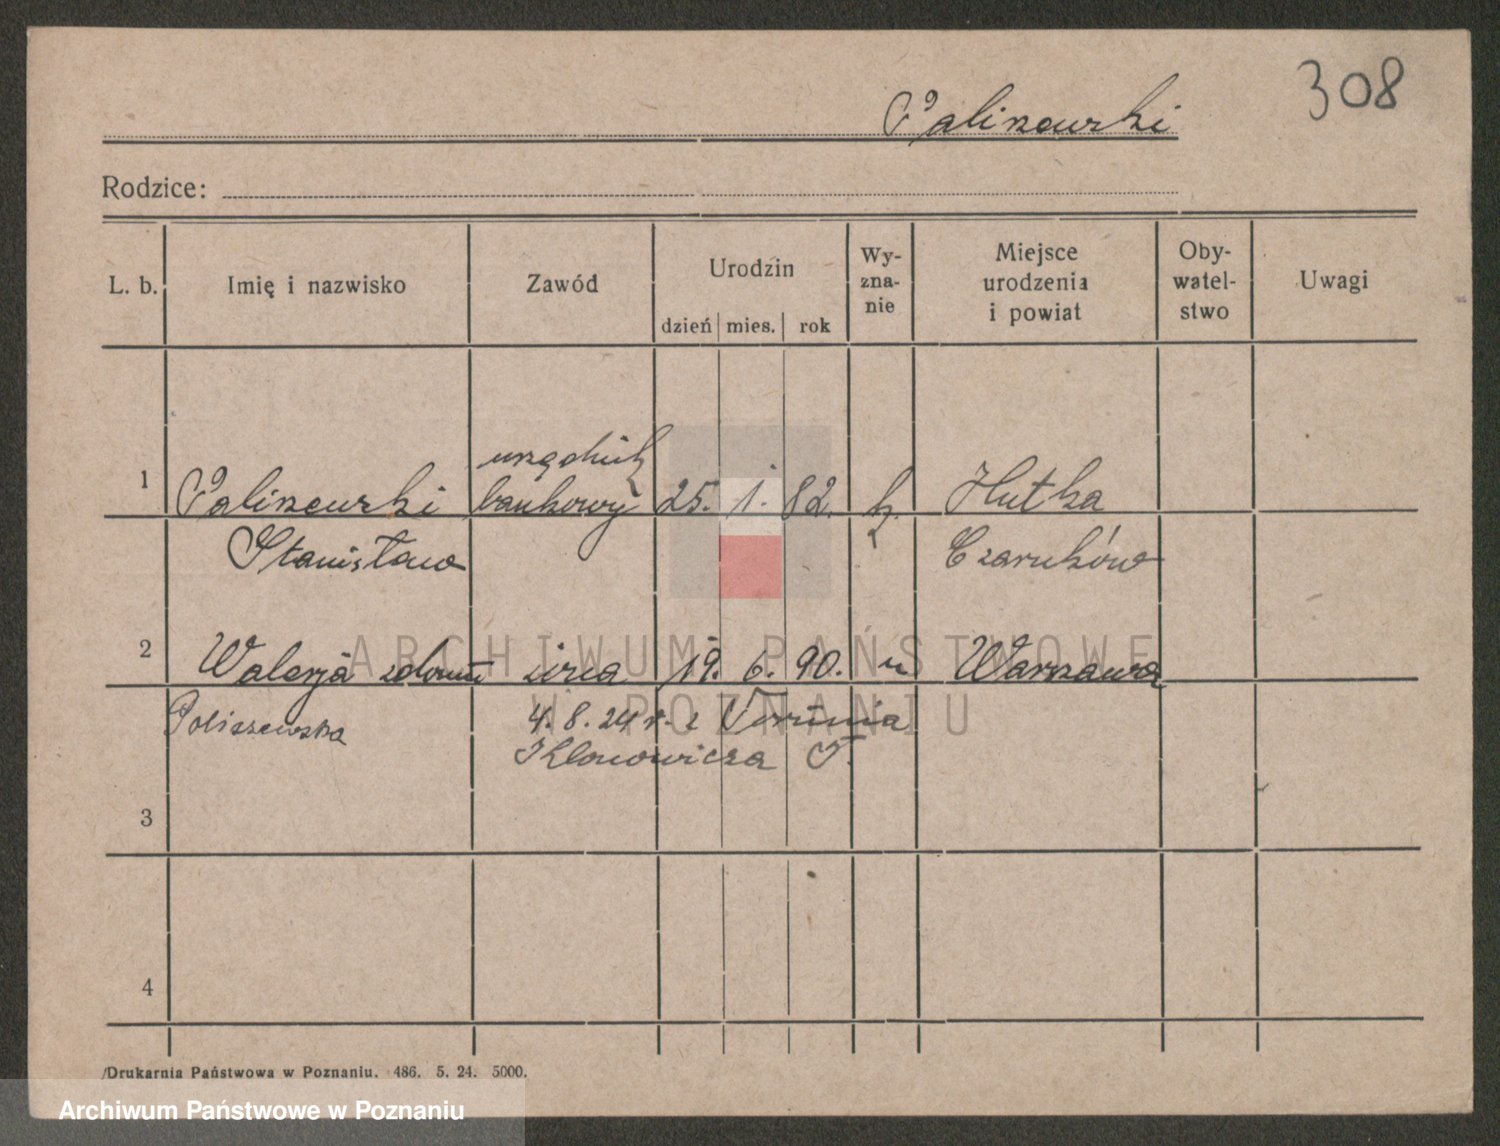 308
Paliszewski
Rodzice:
L. b. Imię i nazwisko Zawód Urodzin dzień mies. rok Wy-zna-nie Miejsce urodzenia i powiat Oby-watel-stwo Uwagi
urzędnik
1 Paliszewski bankowy 25. 1. 82. k. Hutka
Stanisław Czarnków
2 Walerja żona 19. 6. 90. " Warszawa
Poliszewska 4. 8. 24 r. z Torunia
Klonowicza
3
4
Drukarnia Państwowa w Poznaniu. 486. 5. 24. 5000.
ARCHIWUM PAŃSTWOWE
W POZNANIU
Archiwum Państwowe w Poznaniu